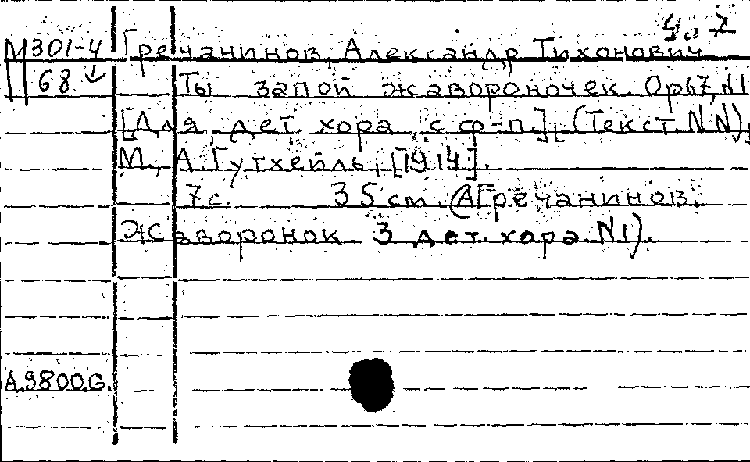 У. 7
М301-4 Гречанинов, Александр Тихонович
68 Ты запой жавороночек. Op67,N1
[Для дет хора с ф-п.]. (Текст NN).
М., А. Гутхейль, [1914].
7с. 35 cm. (А Гречанинов.
Жаворонок 3 дет. хора. N1).
A.9800.G.